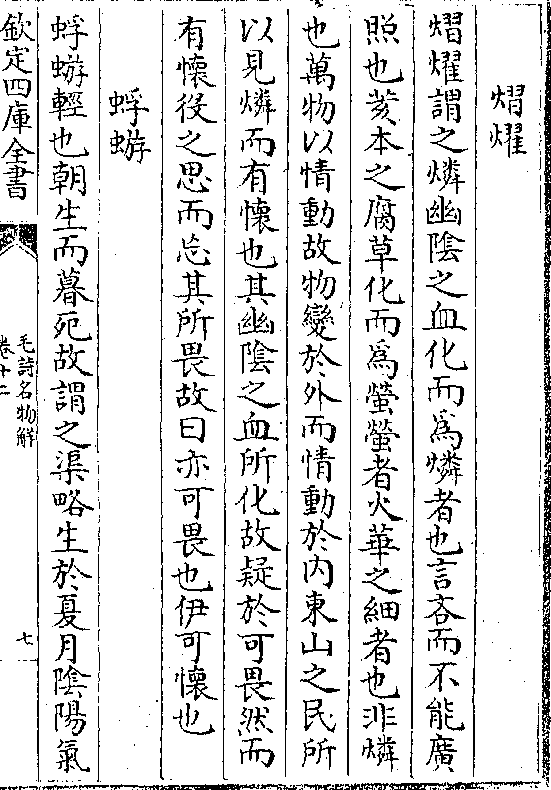 熠燿
熠燿謂之燐幽陰之血化而為燐者也言吝而不能廣
照也茇本之腐草化而為螢螢者火華之細者也非燐
也萬物以情動故物變於外而情動於内東山之民所
以見燐而有懷也其幽陰之血所化故疑於可畏然而
有懷役之思而忘其所畏故曰亦可畏也伊可懷也
蜉蝣
蜉蝣輕也朝生而暮死故謂之渠略生於夏月陰陽氣
欽定四庫全書
毛詩名物解
卷十二
七